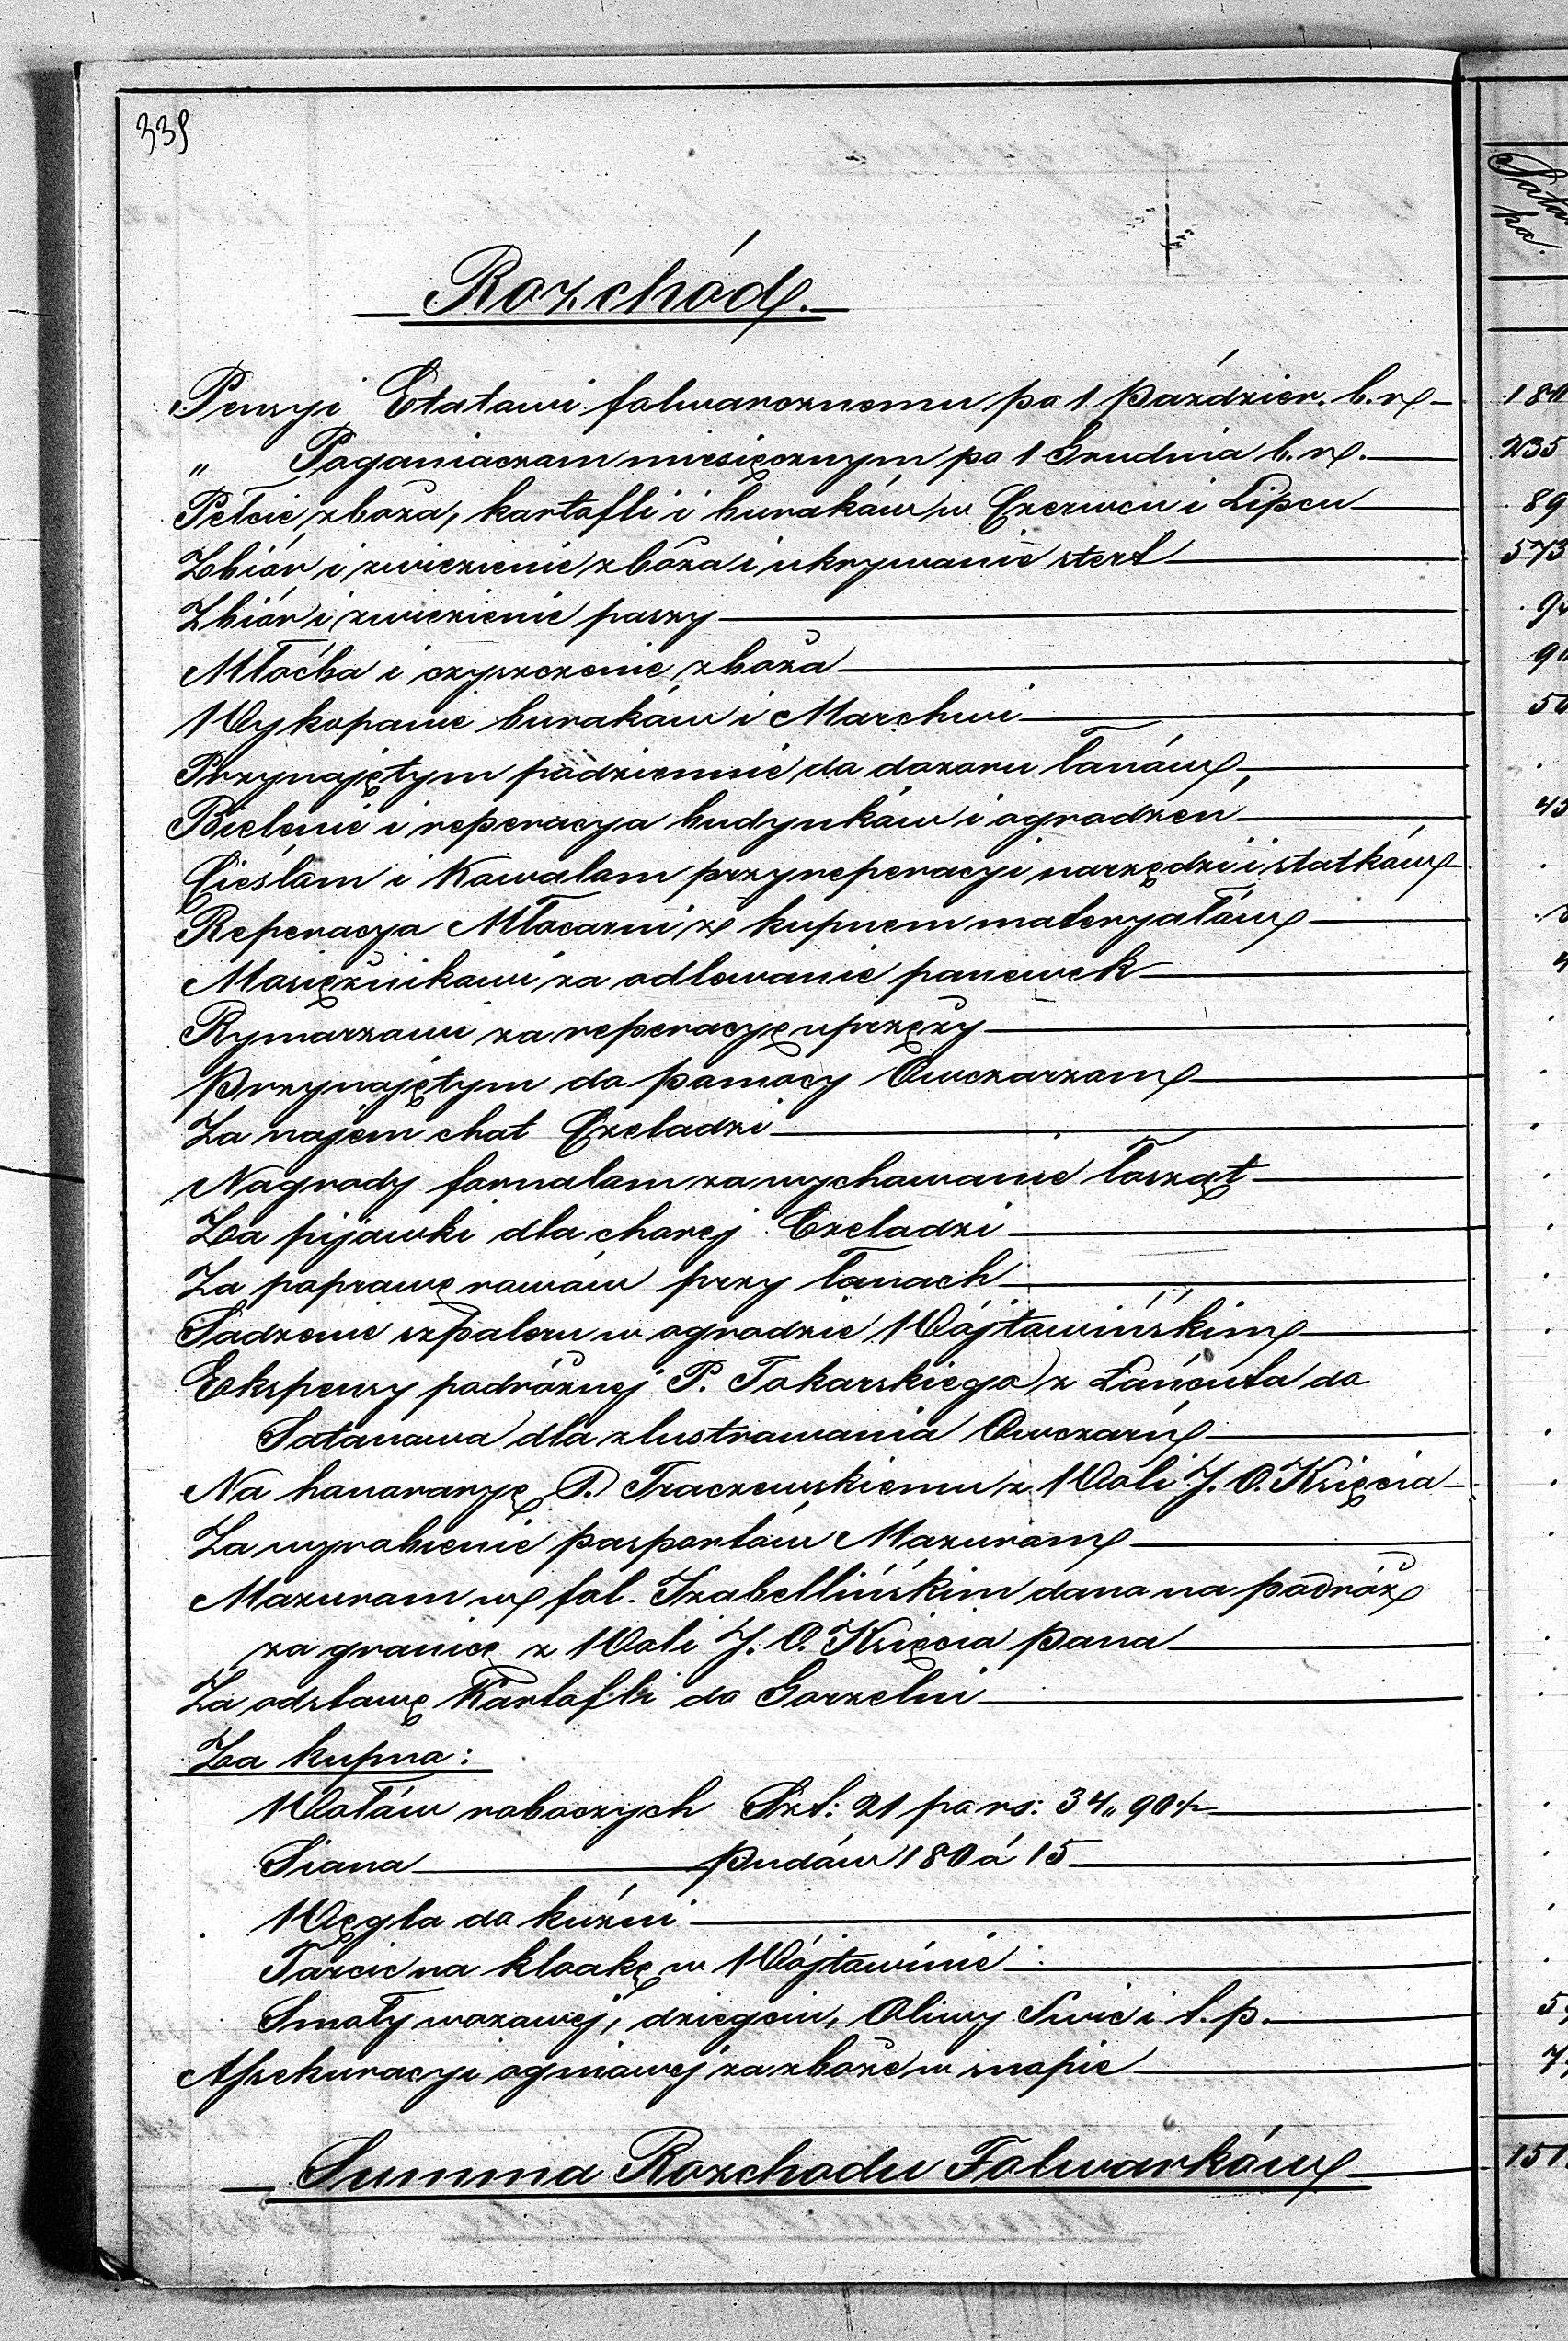 339
Rozchód.
Pensyi Etatowi folwarcznemu po 1 Paździer. b.r.
„ Poganiaczom miesięcznym po 1 Grudnia b.r.
Pełcie zboża, kartofli i buraków w Czerwcu i Lipcu
Zbiór i zwiezienie zboża i ukrywanie stert
Zbiór i zwiezienie paszy
Młoćba i czyszczenie zboża
Wykopanie buraków i Marchwi
Przynajętym podziennie do dozoru łanów
Bielenie i reperacya budynków i ogrodzeń
Cieślom i Kowalom przy reperacyi narzędzi i statków
Reperacya Młocarni z kupnem materyałów
Mosiężnikowi za odlewanie panewek
Rymarzowi za reperacyę uprzęży
Przynajętym do pomocy Owczarzom
Za najem chat Czeladzi
Nagrody fornalom za wychowanie łosząt
Za pijawki dla chorej Czeladzi
Za poprawę rowów przy łanach
Sadzenie szpaleru w ogrodzie Wójtowińskim
Ekspensy podróżnej P. Tokarskiego z Łańcuta do
Satanowa dla zlustrowania Owczarń
Na honoraryę P. Traczewskiemu z Woli J. O. Księcia
Za wyrobienie pasportów Mazurom
Mazurom w fol. Izabellińskim dano na podróż
za granicę z Woli J. O. Księcia Pana
Za odstawę Kartofli do Gorzelni
Za kupno:
Wołów roboczych Szt: 21 po rs: 34„90½
Siana pudów 180 á 15
Węgla do kuźni
Tarcic na kloakę w Wójtowinie
Smoły wozowej, dziegciu, Oliwy Świc i t.p.
Assekuracyi ogniowej za zboże w snopie
Summa Rozchodu Folwarków
235
89
573